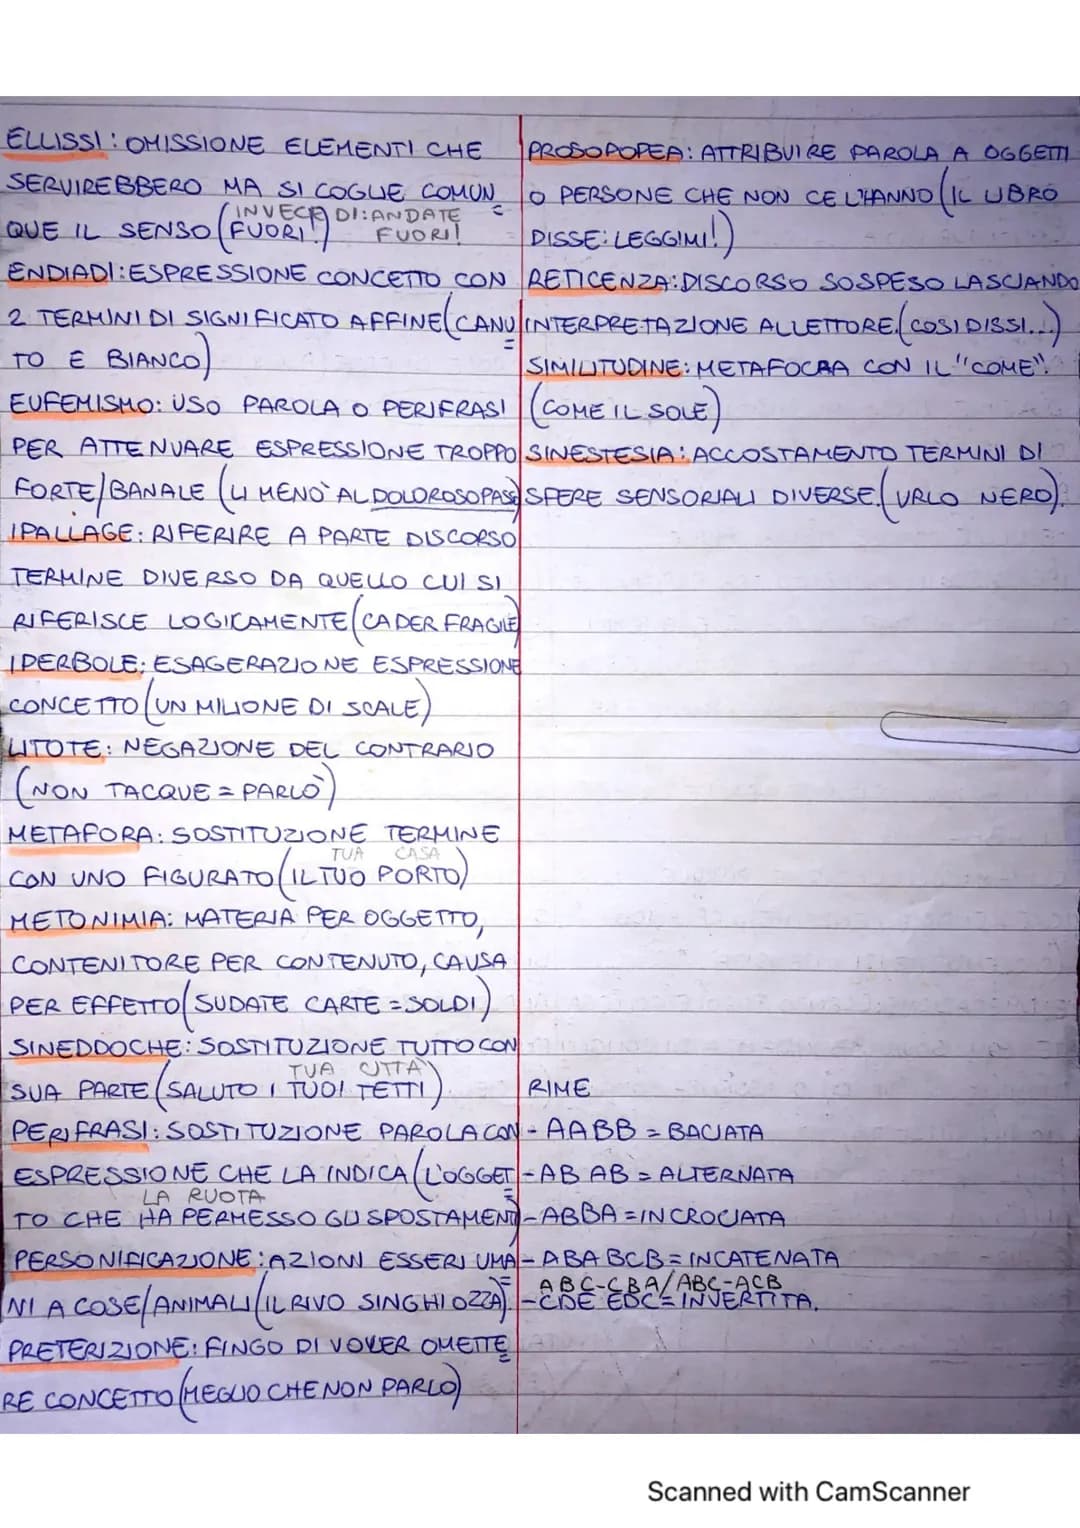 ELLISSI: OMISSIONE ELEMENTI CHE
SERVIREBBERO MA SI COGLIE COMUN
INVECE DI: ANDATE
QUE IL SENSO (FUORI!) FUORI!
ENDIADI: ESPRESSIONE CONCETTO CON
2 TERMINI DI SIGNIFICATO AFFINE (CANU
TO E BIANCO)
EUFEMISMO: USO PAROLA O PERIFRASI
PER ATTENUARE ESPRESSIONE TROPPO
FORTE/BANALE (LI MENÒ AL DOLOROSO PASS
IPALLAGE: RIFERIRE A PARTE DISCORSO
TERMINE DIVERSO DA QUELLO CUI SI
RIFERISCE LOGICAMENTE (CADER FRAGILE)
IPERBOLE: ESAGERAZIONE ESPRESSIONE
CONCETTO (UN MILIONE DI SCALE)
LITOTE: NEGAZIONE DEL CONTRARIO
(NON TACQUE = PARLÒ)
METAFORA: SOSTITUZIONE TERMINE
TUA CASA
CON UNO FIGURATO (IL TUO PORTO)
METONIMIA: MATERIA PER OGGETTO,
CONTENITORE PER CONTENUTO, CAUSA
PER EFFETTO (SUDATE CARTE = SOLDI)
SINEDDOCHE: SOSTITUZIONE TUTTO CON
TUA CITTÀ
SUA PARTE (SALUTO I TUOI TETTI)
PERIFRASI: SOSTITUZIONE PAROLA CON
ESPRESSIONE CHE LA INDICA (L'OGGET
LA RUOTA
TO CHE HA PERMESSO GLI SPOSTAMENTI
PERSONIFICAZIONE: AZIONI ESSERI UMA
NI A COSE/ANIMALI (IL RIVO SINGHIOZZA).
PRETERIZIONE: FINGO DI VOLER OMETTE
RE CONCETTO (MEGLIO CHE NON PARLO)
PROSOPOPEA: ATTRIBUIRE PAROLA A OGGETTI
O PERSONE CHE NON CE L'HANNO (IL LIBRO
DISSE: LEGGIMI!)
RETICENZA: DISCORSO SOSPESO LASCIANDO
INTERPRETAZIONE ALLETTORE. (COSI DISSI...)
SIMILITUDINE: METAFOCRA CON IL "COME".
(COME IL SOLE)
SINESTESIA: ACCOSTAMENTO TERMINI DI
SFERE SENSORIALI DIVERSE. (URLO NERO).
RIME
- AABB = BACIATA
- AB AB = ALTERNATA
- ABBA = INCROCIATA
- ABA BCB = INCATENATA
ABC-CBA/ABC-ACB
- CDE EDC = INVERTITA.
Scanned with CamScanner